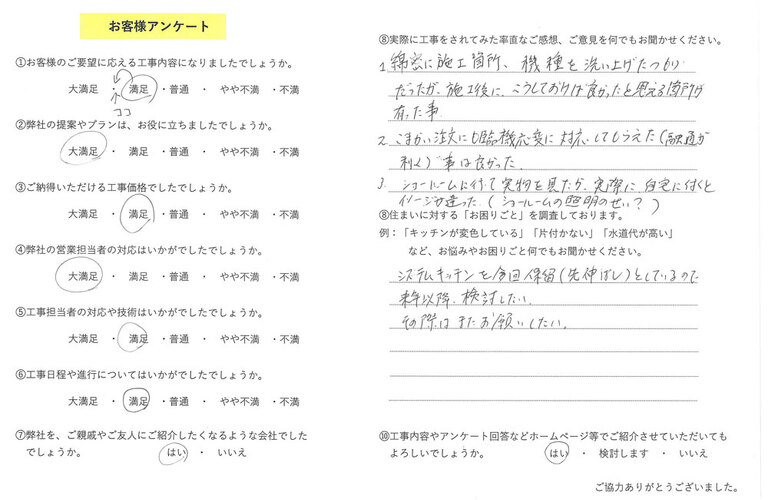 お客様アンケート
①お客様のご要望に応える工事内容になりましたでしょうか。
大満足 ・ 満足 ・普通 ・ やや不満 ・不満
ココ
②弊社の提案やプランは、お役に立ちましたでしょうか。
大満足 ・ 満足 ・普通 ・ やや不満 ・不満
③ご納得いただける工事価格でしたでしょうか。
大満足 ・ 満足 ・普通 ・ やや不満 ・不満
④弊社の営業担当者の対応はいかがでしたでしょうか。
大満足 ・ 満足 ・普通 ・ やや不満 ・不満
⑤工事担当者の対応や技術はいかがでしたでしょうか。
大満足 ・ 満足 ・普通 ・ やや不満 ・不満
⑥工事日程や進行についてはいかがでしたでしょうか。
大満足 ・ 満足 ・普通 ・ やや不満 ・不満
⑦弊社を、ご親戚やご友人にご紹介したくなるような会社でした
でしょうか。 はい ・ いいえ
⑧実際に工事をされてみた率直なご感想、ご意見を何でもお聞かせください。
1. 綿密に施工箇所、機種を洗い上げたつもり
だったが、施工後に、こうしておけば良かったと思える箇所が
有った事
2. こまかい注文にも臨機応変に対応してもらえた(融通が
利く)事は良かった
3. ショールームに行って実物を見たが、実際に自宅に付くと
イメージが違った(ショールームの照明のせい?)
⑧住まいに対する「お困りごと」を調査しております。
例:「キッチンが変色している」「片付かない」「水道代が高い」
など、お悩みやお困りごと何でもお聞かせください。
システムキッチンを今回保留(先伸ばし)としているので
来年以降、検討したい。
その際はまたお願いしたい。
⑩工事内容やアンケート回答などホームページ等でご紹介させていただいても
よろしいでしょうか。 はい ・ 検討します ・ いいえ
ご協力ありがとうございました。